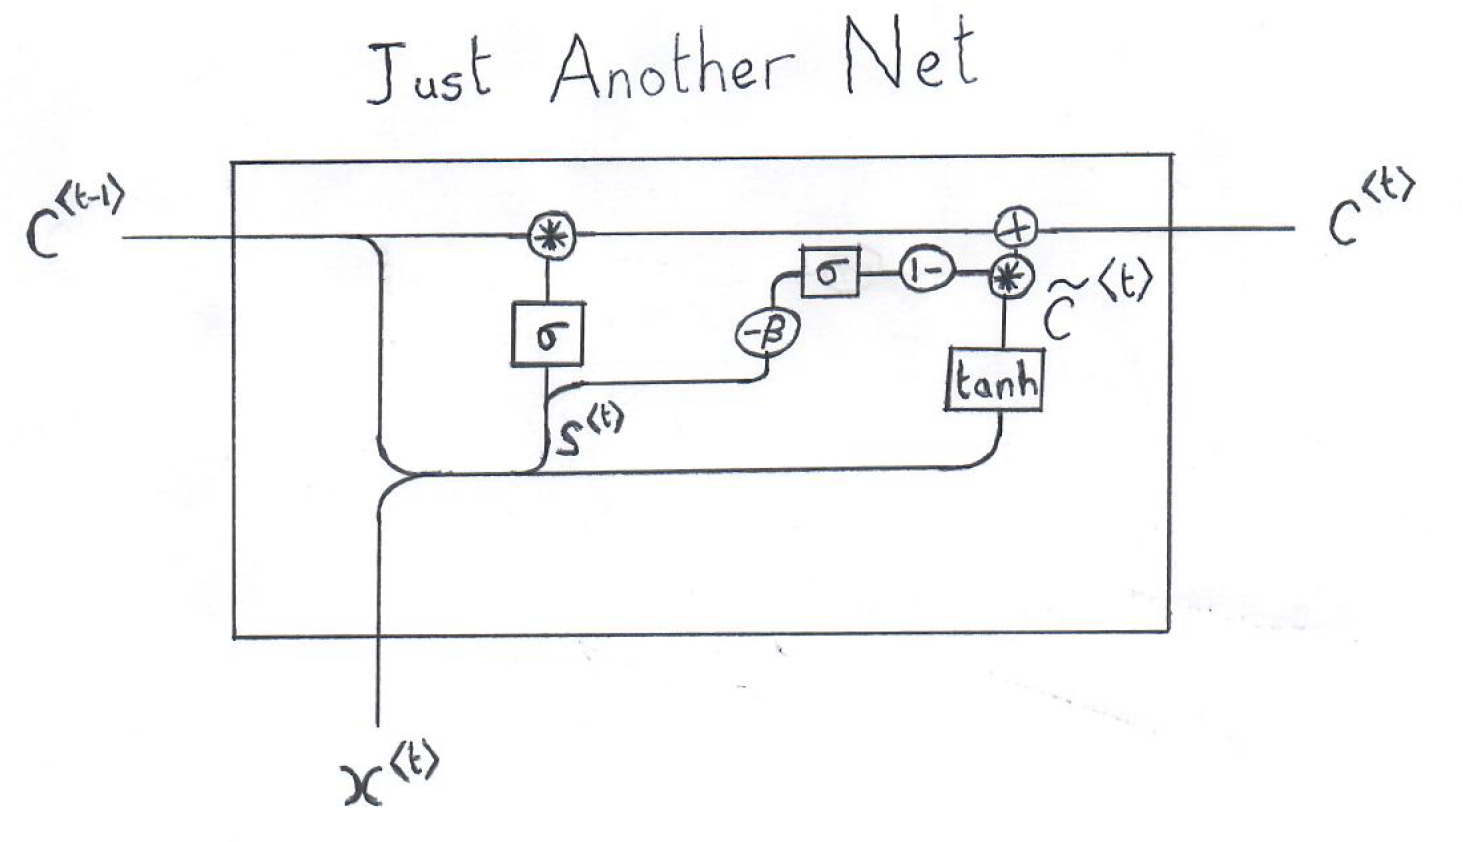 Just Another Net
C^{⟨t-1⟩}
C^{⟨t⟩}
*
+
σ
1-
*
C̃^{⟨t⟩}
-β
σ
tanh
S^{⟨t⟩}
x^{⟨t⟩}